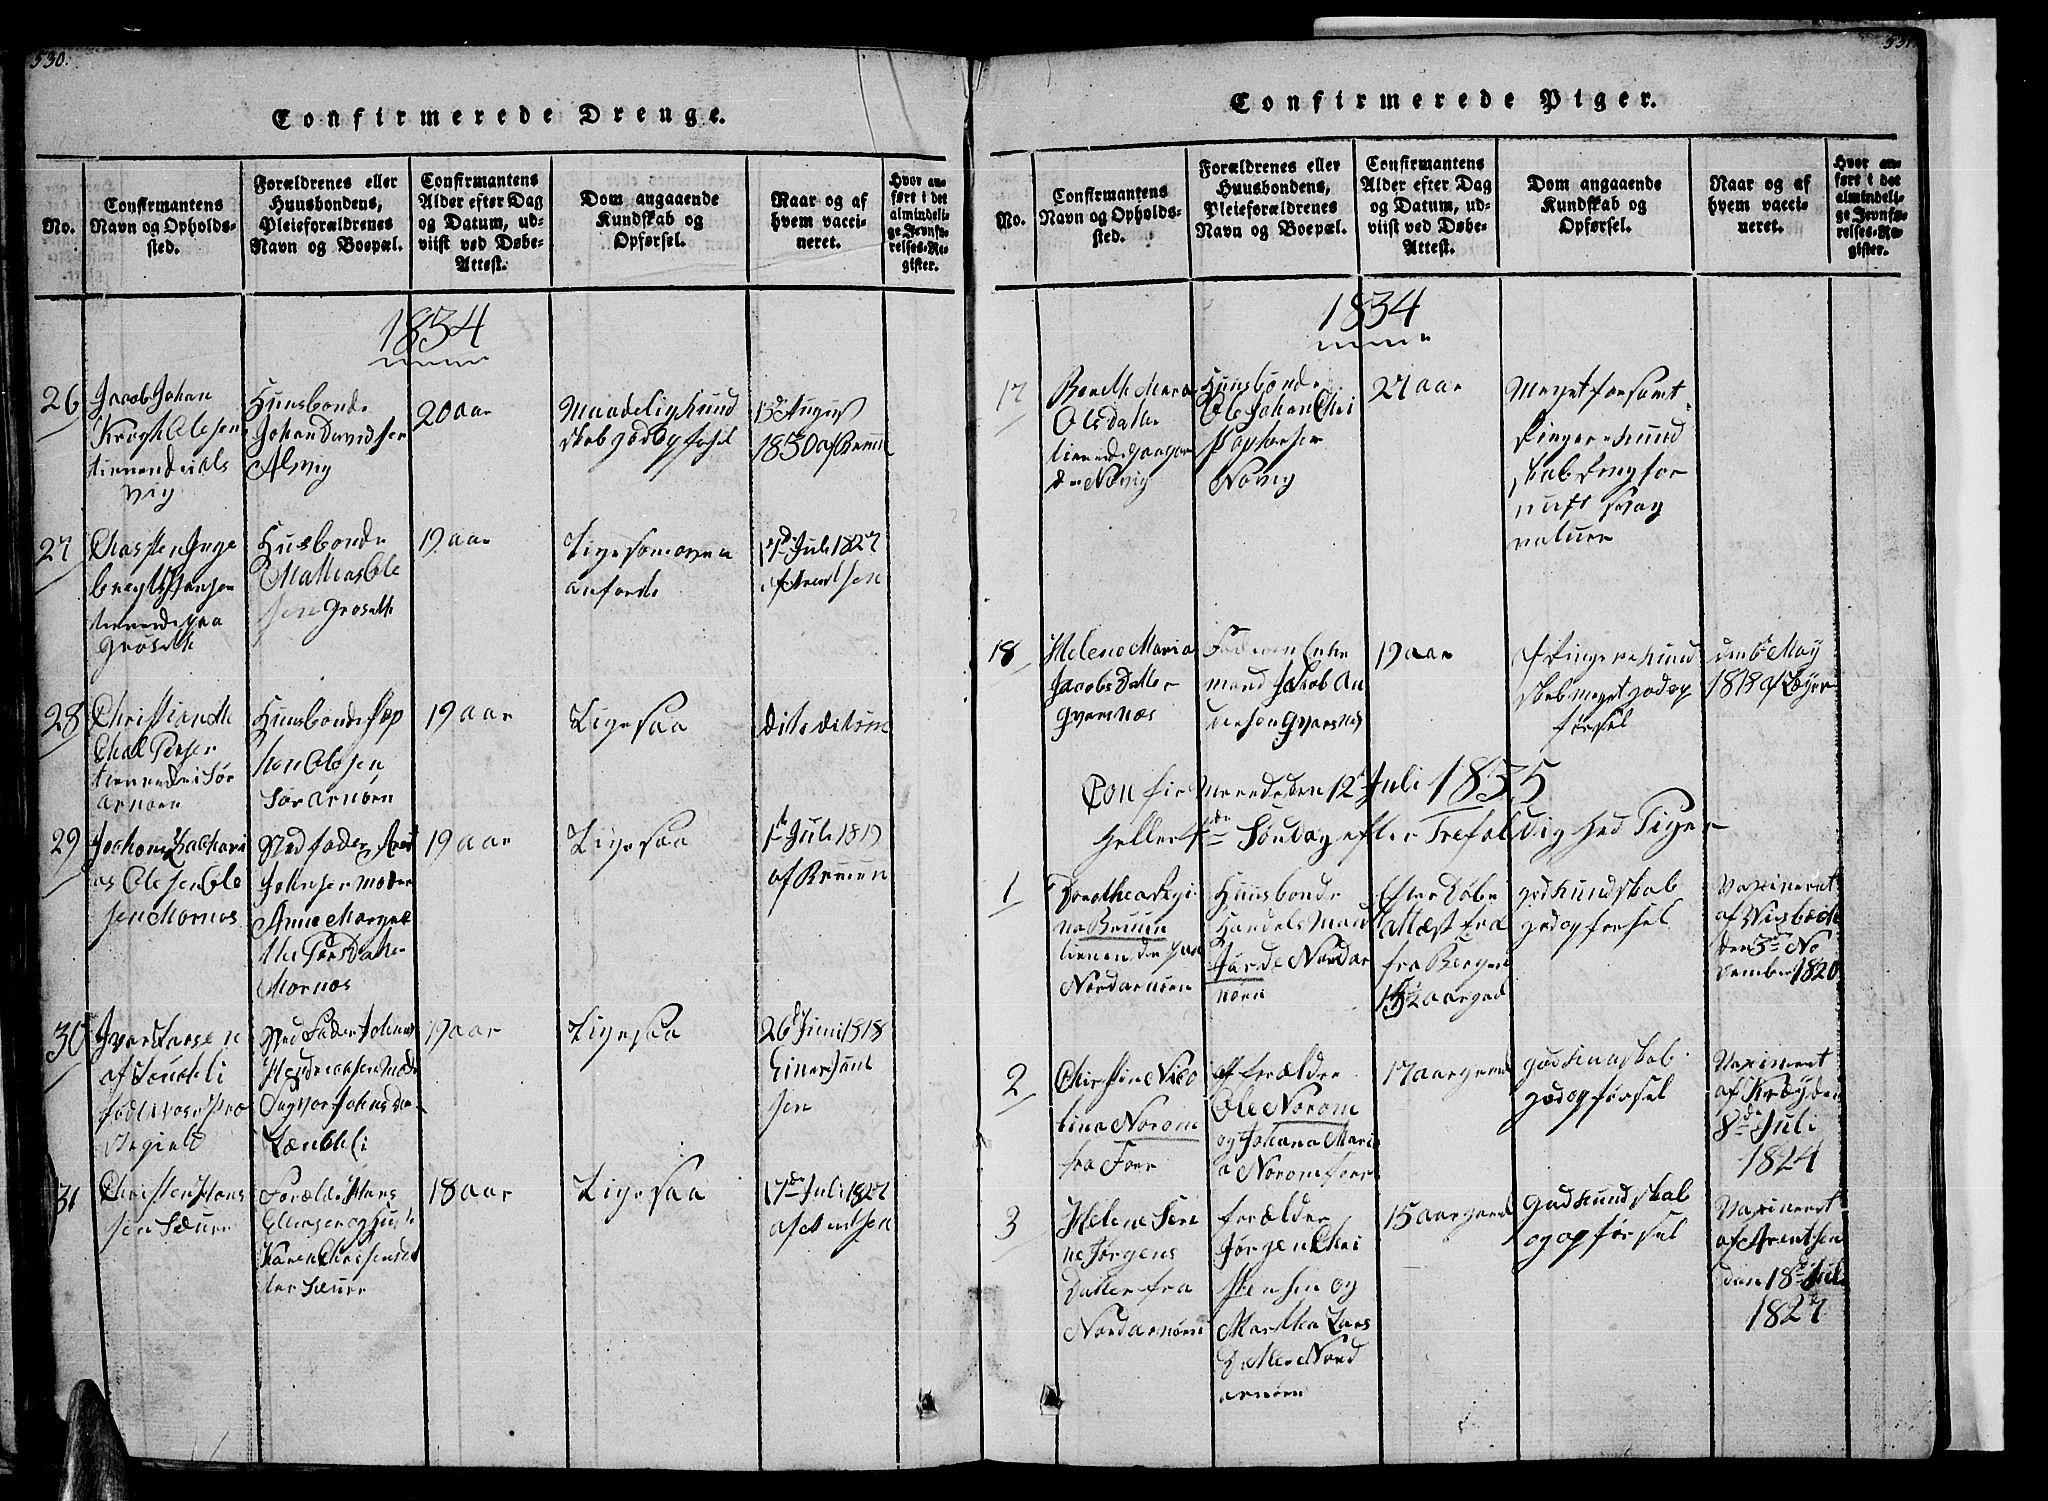 530.
Confirmerede Drenge.
No.
Confirmantens
Navn og Opholds-
sted.
Forældrenes eller
Huusbondens,
Pleieforældrenes
Navn og Boepæl.
Confirmantens
Alder efter Dag
og Datum, ud-
viist ved Døbe-
Attest.
Dom angaaende
Kundskab og
Opførsel.
Naar og af
hvem vacci-
neret.
Hvor an-
ført i det
almindeli-
ge Jevnfø-
relses-Re-
gister.
1834
26
Jacob Johan
Krogh Olesen
tienende i Als
vig
Huusbonde
Johan Davidsen
Alsvig
20 aar
Maadelig Kund
skab god opførsel
13de August
1830 af Bruun
27
Chasten Inge
bregt Hansen
tienende paa
Groseth
Husbonde
Mathias Ole
sen Groseth
19 aar
Lige som oven
anførte
17de Juli 1827
af Arentsen
28
Christian
tienende i Sør
arnøen
Huusbonde
Olesen
Sør arnøen
19 aar
Ligesaa
dito ditum
29
Jochom Zachari
as Olesen Ole
sen Mornæs
Sted fader
Johnsen moder
Anne Margre
the Pers Datter
Mornæs
19 aar
Ligesaa
1de Juli 1819
af Bruun
30
Iver Larsen
Sted Fader Johannes
Hendrichsen Mode
19 aar
Ligesaa
26de Juni 1818
Einert Juul
sen
31
Christen Hans
sen Sæuer
Foræld. Hans
Ellingsen og Hust
Karen Christensdat
ter Sæuer
18 aar
Ligesaa
17de Juli 1827
af Arentsen
531.
Confirmerede Piger.
No.
Confirmantens
Navn og Opholds-
sted.
Forældrenes eller
Huusbondens,
Pleieforældrenes
Navn og Boepæl.
Confirmantens
Alder efter Dag
og Datum, ud-
viist ved Døbe-
Attest.
Dom angaaende
Kundskab og
Opførsel.
Naar og af
hvem vacci-
neret.
Hvor an-
ført i det
almindeli-
ge Jevnfø-
relses-Re-
gister.
1834
17
Bereth Maria
Olsdatter
tienende paa gaar
den Novig
Huusbonde
Ole Johan Chri
stophersen
Novig
27 aar
Meget forsømt
Ringere Kund
skab
svag
natuur
18
Helena Maria
Jacobs Datter
Gversnæs
Faderen Enke
mand Jakob An
dersen Gversnæs
19 aar
Ringere Kund
skab meget god op
førsel
den 6te May
1818 af Løyer
Confirmerede den 12te Juli 1835
heller 4de Søndag efter Trefoldighed Piger
1
Dorothea Regi
na Bruun
tienende paa
Nordarnøen
Huusbonde
Handels Mand
Jarde Nordar
nøen
Efter Døbe
attæst fra
fra Bergen
15½ aar gml
god Kundskab
god opførsel
Vaxineret
af Nisbeth
den 3de No
vember 1820
2
Christine Nico
lina Norom
fra Foer
af forældre
Ole Norom
og Johana Mari
a Norom foer
17 aar gmel
god Kundskab
god opførsel
Vaxineret
af Krøyden
8de Juli
1824
3
Helene Seri
ne Jørgens
Datter fra
Nordarnøen
forældre
Jørgen Chri
stensen og
Marthha Lars
Datter Nord
arnøen
15 aar gmel
God Kundskab
og opførsel
Vaxineret
af Arentsen
den 18de Juli
1827